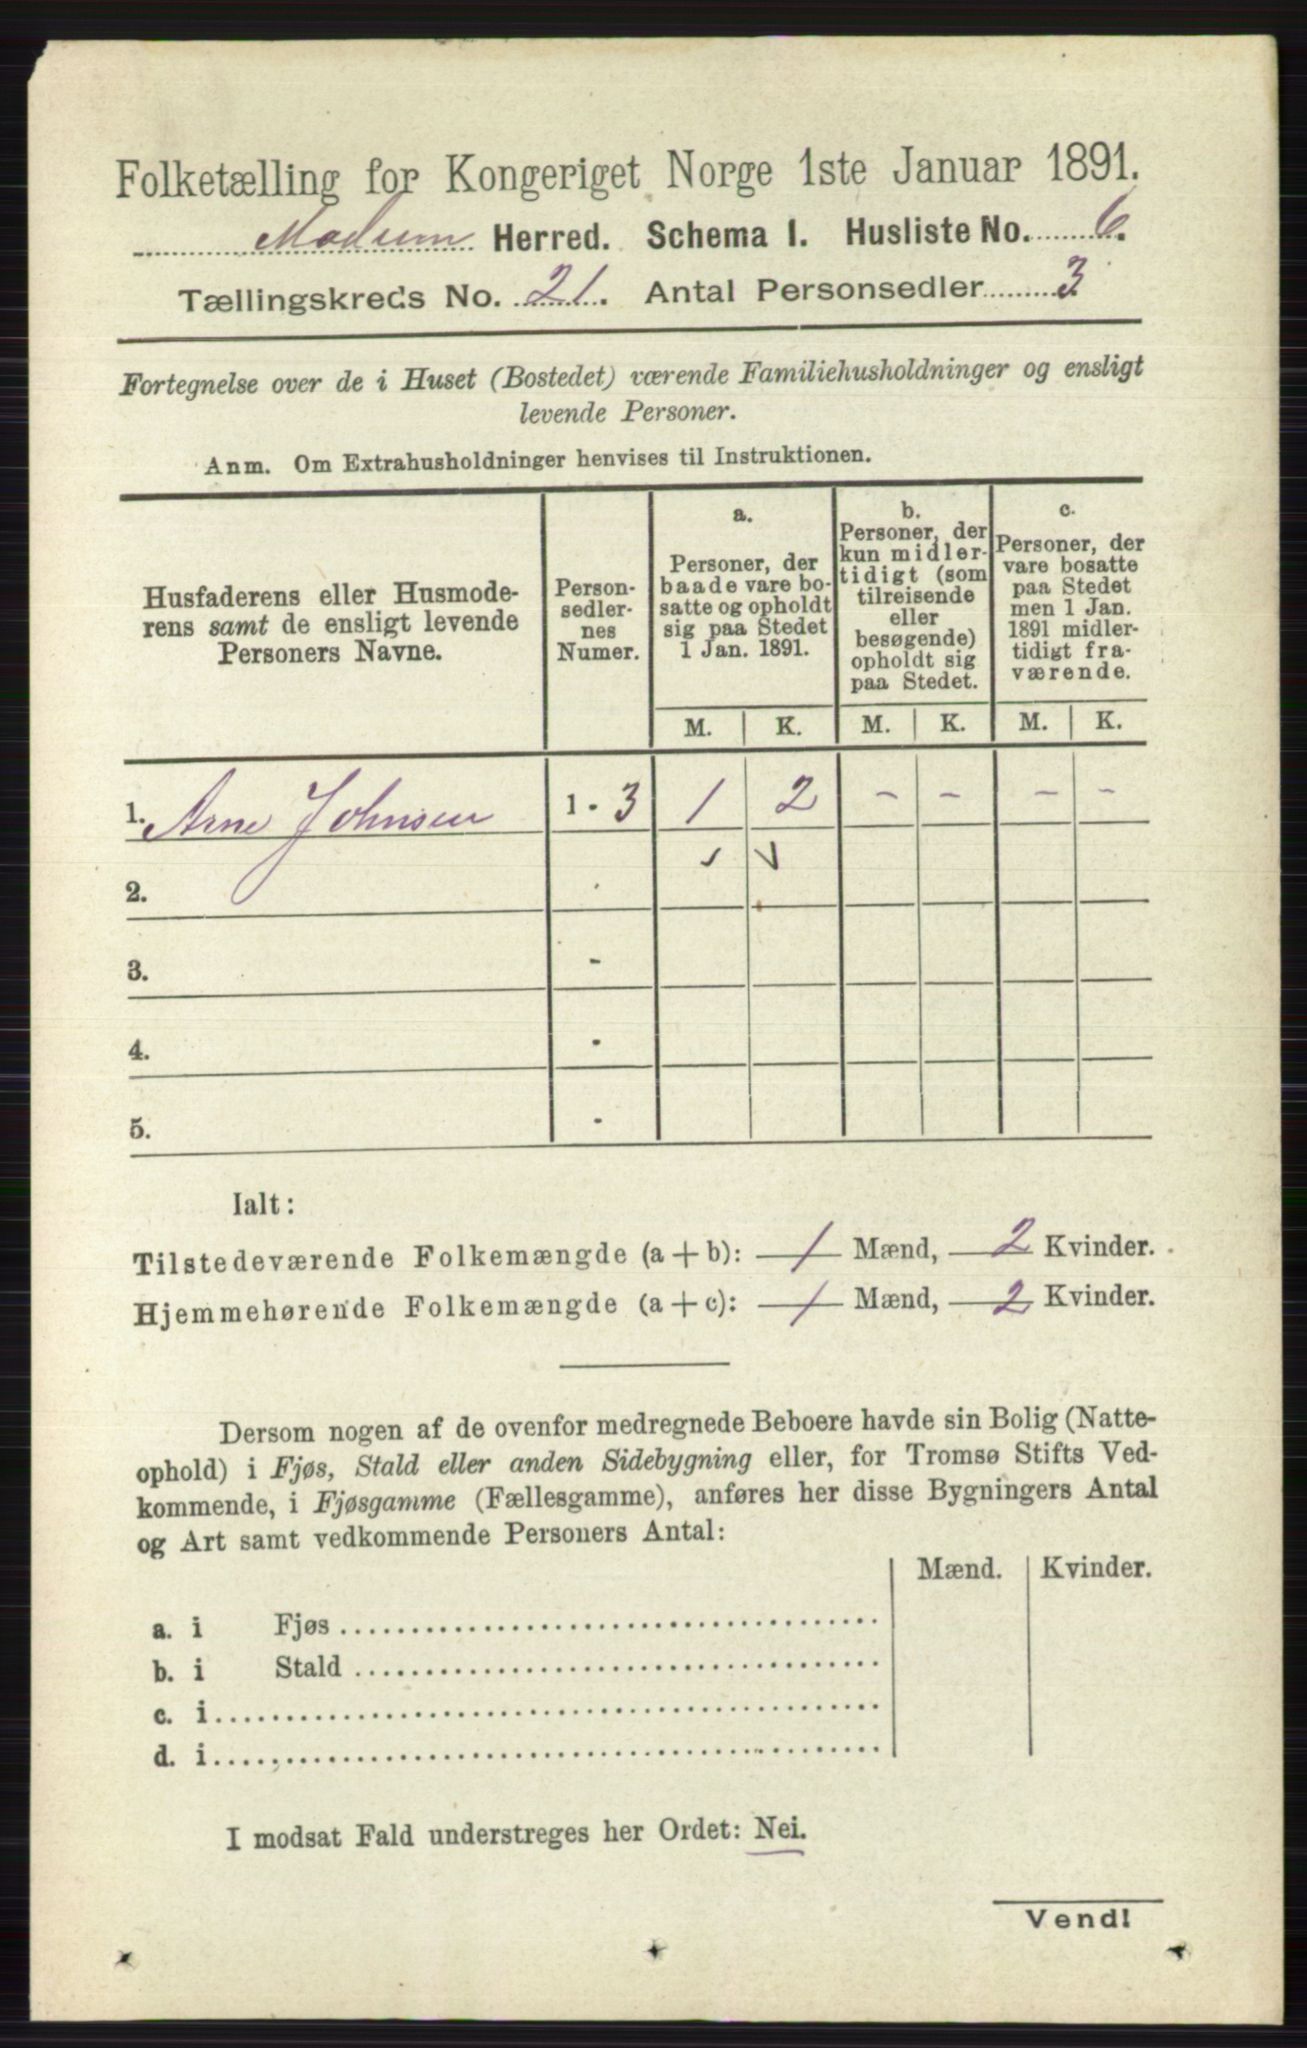 Folketælling for Kongeriget Norge 1ste Januar 1891.
Modum Herred. Schema I. Husliste No. 6.
Tællingskreds No. 21. Antal Personsedler 3
Fortegnelse over de i Huset (Bostedet) værende Familiehusholdninger og ensligt
levende Personer.
Anm. Om Extrahusholdninger henvises til Instruktionen.
Husfaderens eller Husmode-
rens samt de ensligt levende
Personers Navne.
Person-
sedler-
nes
Numer.
a.
Personer, der
baade vare bo-
satte og opholdt
sig paa Stedet
1 Jan. 1891.
b.
Personer, der
kun midler-
tidigt (som
tilreisende
eller
besøgende)
opholdt sig
paa Stedet.
c.
Personer, der
vare bosatte
paa Stedet
men 1 Jan.
1891 midler-
tidigt fra-
værende.
M. K. M. K. M. K.
1. Arne Johnsen 1 - 3 1 2 - - - -
2.
3. -
4. -
5. -
Ialt:
Tilstedeværende Folkemængde (a + b): 1 Mænd, 2 Kvinder.
Hjemmehørende Folkemængde (a + c): 1 Mænd, 2 Kvinder.
Dersom nogen af de ovenfor medregnede Beboere havde sin Bolig (Natte-
ophold) i Fjøs, Stald eller anden Sidebygning eller, for Tromsø Stifts Ved-
kommende, i Fjøsgamme (Fællesgamme), anføres her disse Bygningers Antal
og Art samt vedkommende Personers Antal:
Mænd. Kvinder.
a. i Fjøs
b. i Stald
c. i
d. i
I modsat Fald understreges her Ordet: Nei.
Vend!